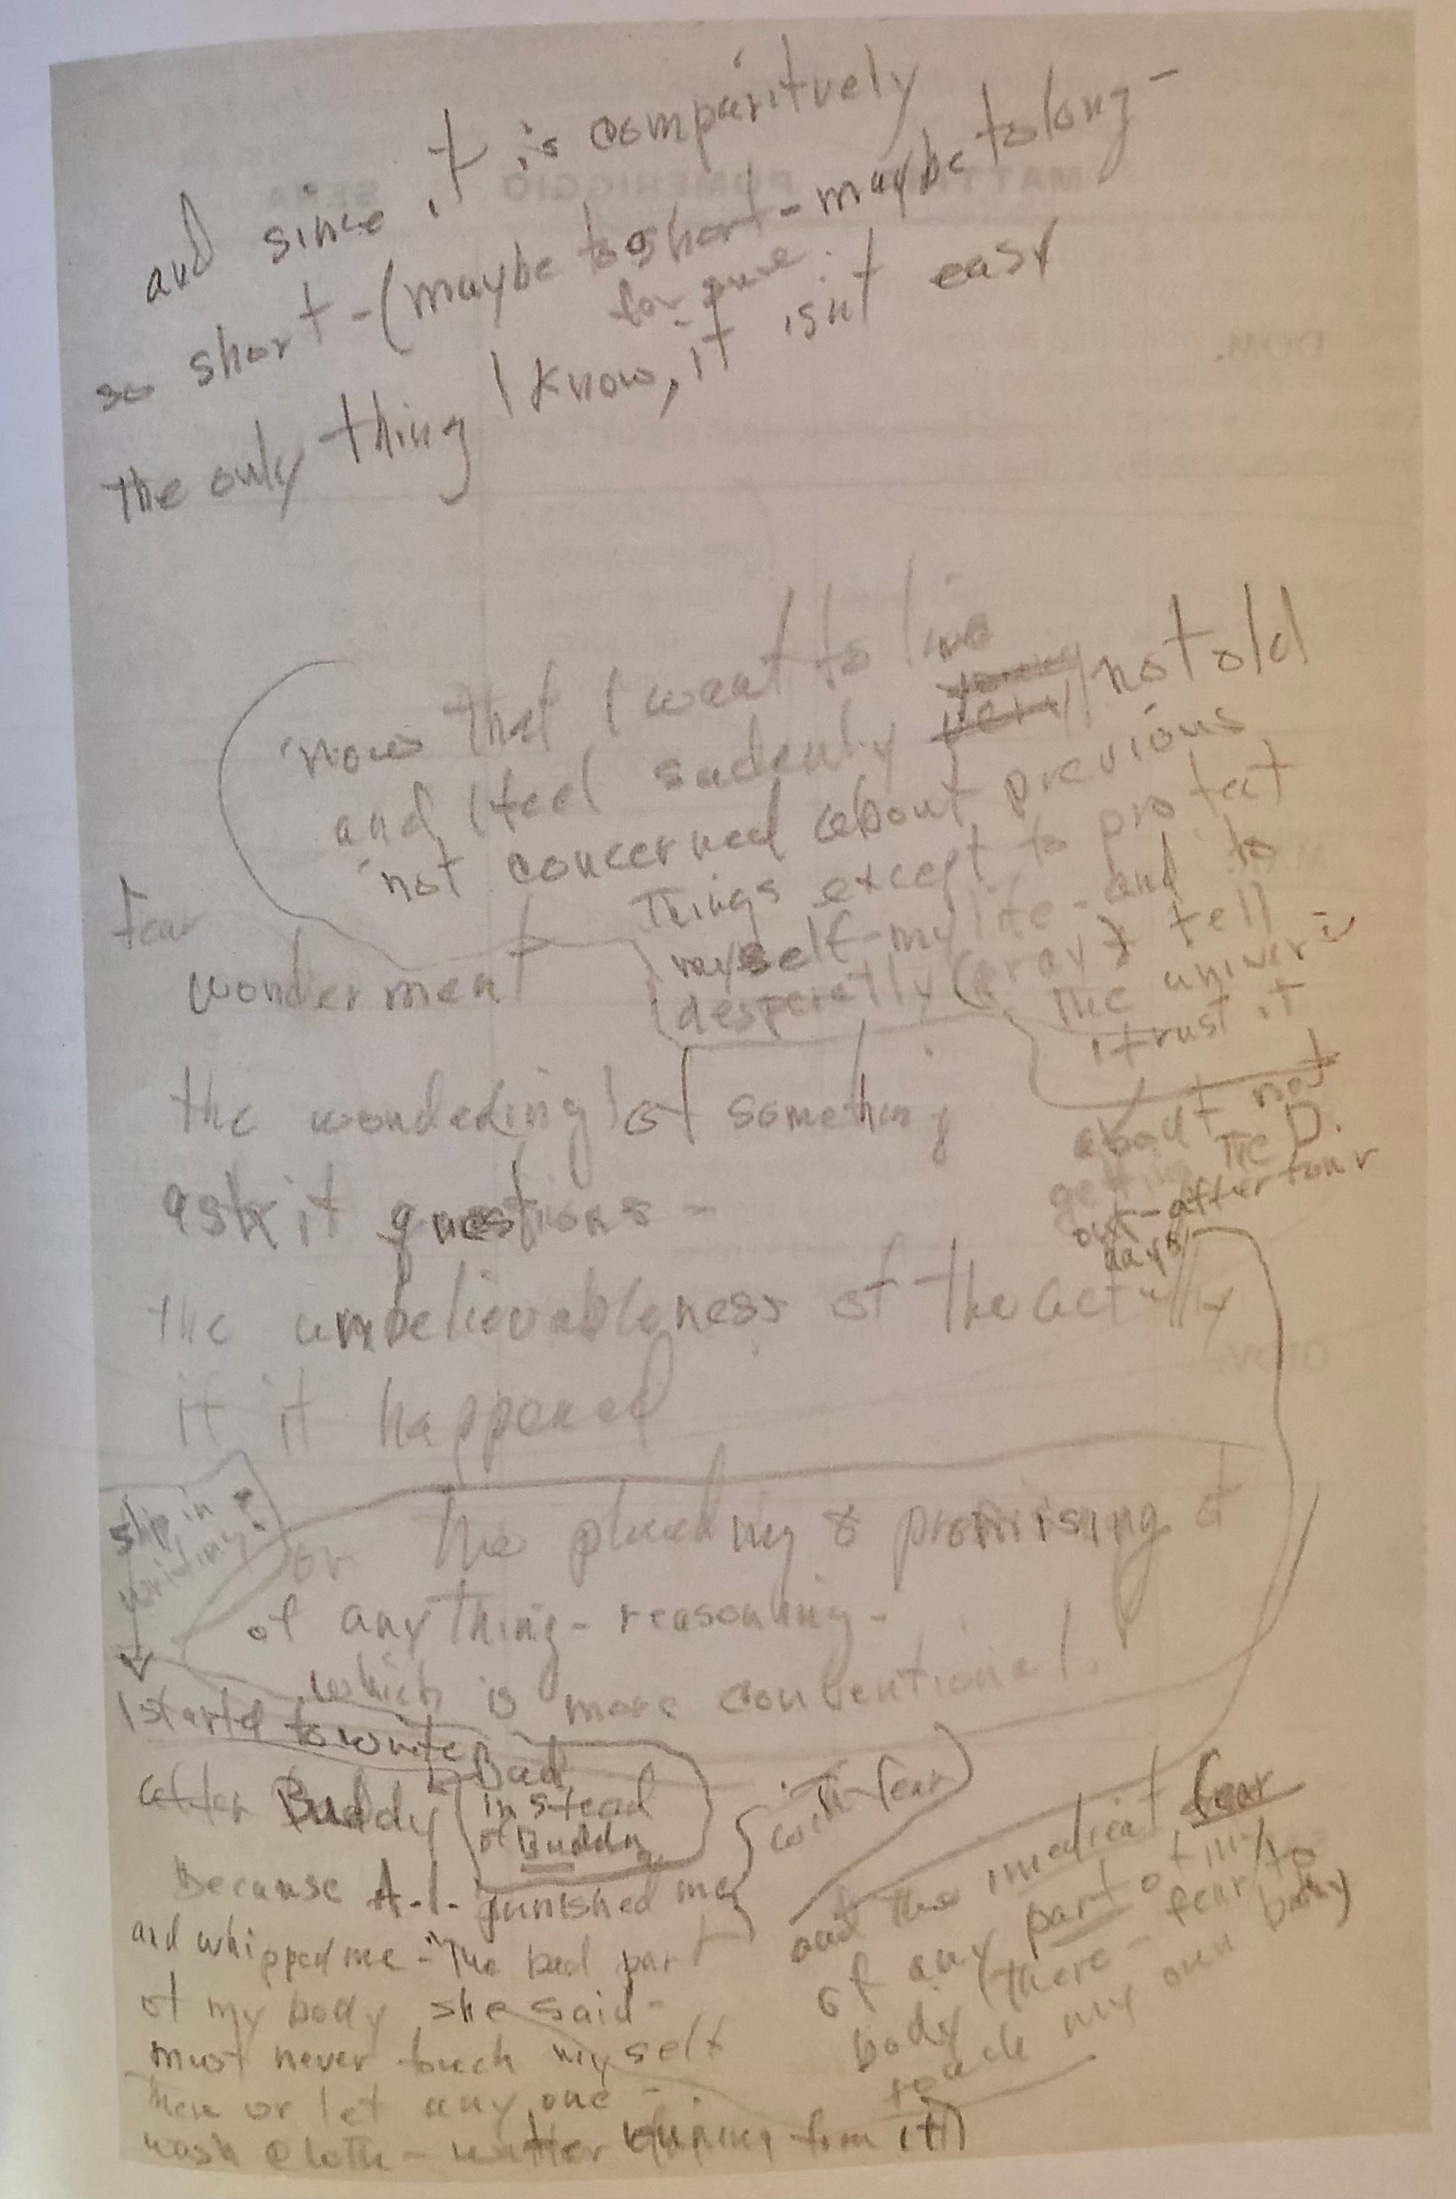 and since it is comparitvely
so short - (maybe to short - maybe to long -
for
the only thing I know, it isn't easy
now that I want to live
and I feel sudenly not old
not concerned about previous
Things except to protect
myself - my life - and to
desperatly (pray) tell
the univer
I trust it
wonderment
the wondering of something
ask it questions -
the unbelievableness of the actully
if it happened
about not
getting the D.
out - after four
days
slip in
writing?
or the & promising of
of anything - reasoning -
which is more conventional.
I started to write Bad
instead
of Buddy
after Buddy
Because A.I. punished me
with fear)
and whipped me - "The bad part
of my body she said -
must never touch myself
there or let any one -
wash cloth - from it)
and the imediat fear
of any part of my
body (there - fear to
touch my own body